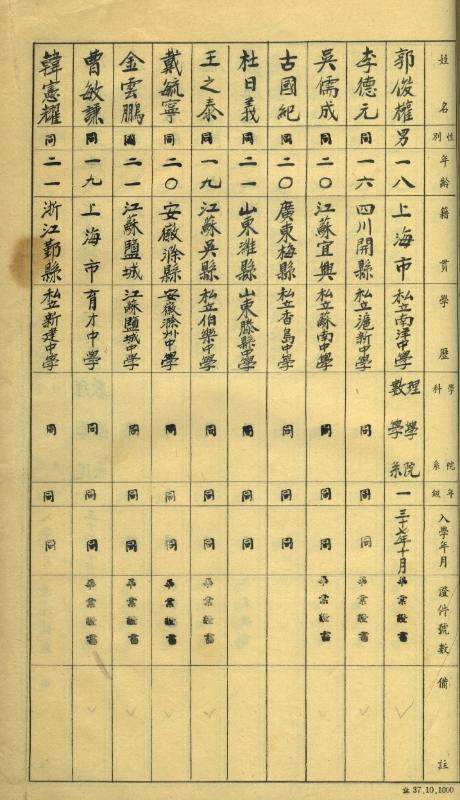 姓名 性別 年齡 籍貫 學歷 學院科系 年級 入學年月 證件號數 備註
郭俊權 男 一八 上海市 私立南洋中學 理學院數學系 一 三十七年十月 畢業證書
李德元 同 一六 四川開縣 私立滬新中學 同 同 同 畢業證書
吳儒成 同 二〇 江蘇宜興 私立蘇南中學 同 同 同 畢業證書
古國紀 同 二〇 廣東梅縣 私立香島中學 同 同 同
杜日義 同 二一 山東濰縣 山東滕縣中學 同 同 同
王之泰 同 一九 江蘇吳縣 私立伯樂中學 同 同 同 畢業證書
戴毓寧 同 二〇 安徽滁縣 安徽滁州中學 同 同 同 畢業證書
金雲鵬 同 二一 江蘇鹽城 江蘇鹽城中學 同 同 同 畢業證書
曹敏謙 同 一九 上海市 育才中學 同 同 同 畢業證書
韓憲耀 同 二一 浙江鄞縣 私立新建中學 同 同 同
註 37,10,1000